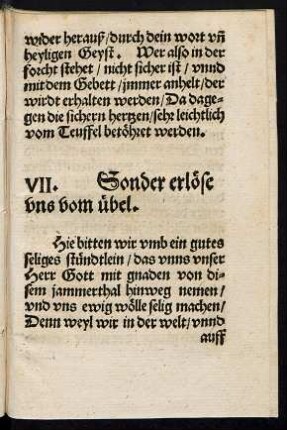 wider herauß/durch dein wort vñ
heyligen Geyst. Wer also in der
forcht stehet / nicht sicher ist / vnnd
mit dem Gebett / jmmer anhelt/der
wirdt erhalten werden/Da dage-
gen die sichern hertzen/sehr leichtlich
vom Teuffel betöhret werden.
VII. Sonder erlöse
vns vom übel.
Hie bitten wir vmb ein gutes
seliges stündtlein / das vnns vnser
Herr Gott mit gnaden von di-
sem jammerthal hinweg nemen/
vnd vns ewig wölle selig machen/
Denn weyl wir in der welt/vnnd
auff